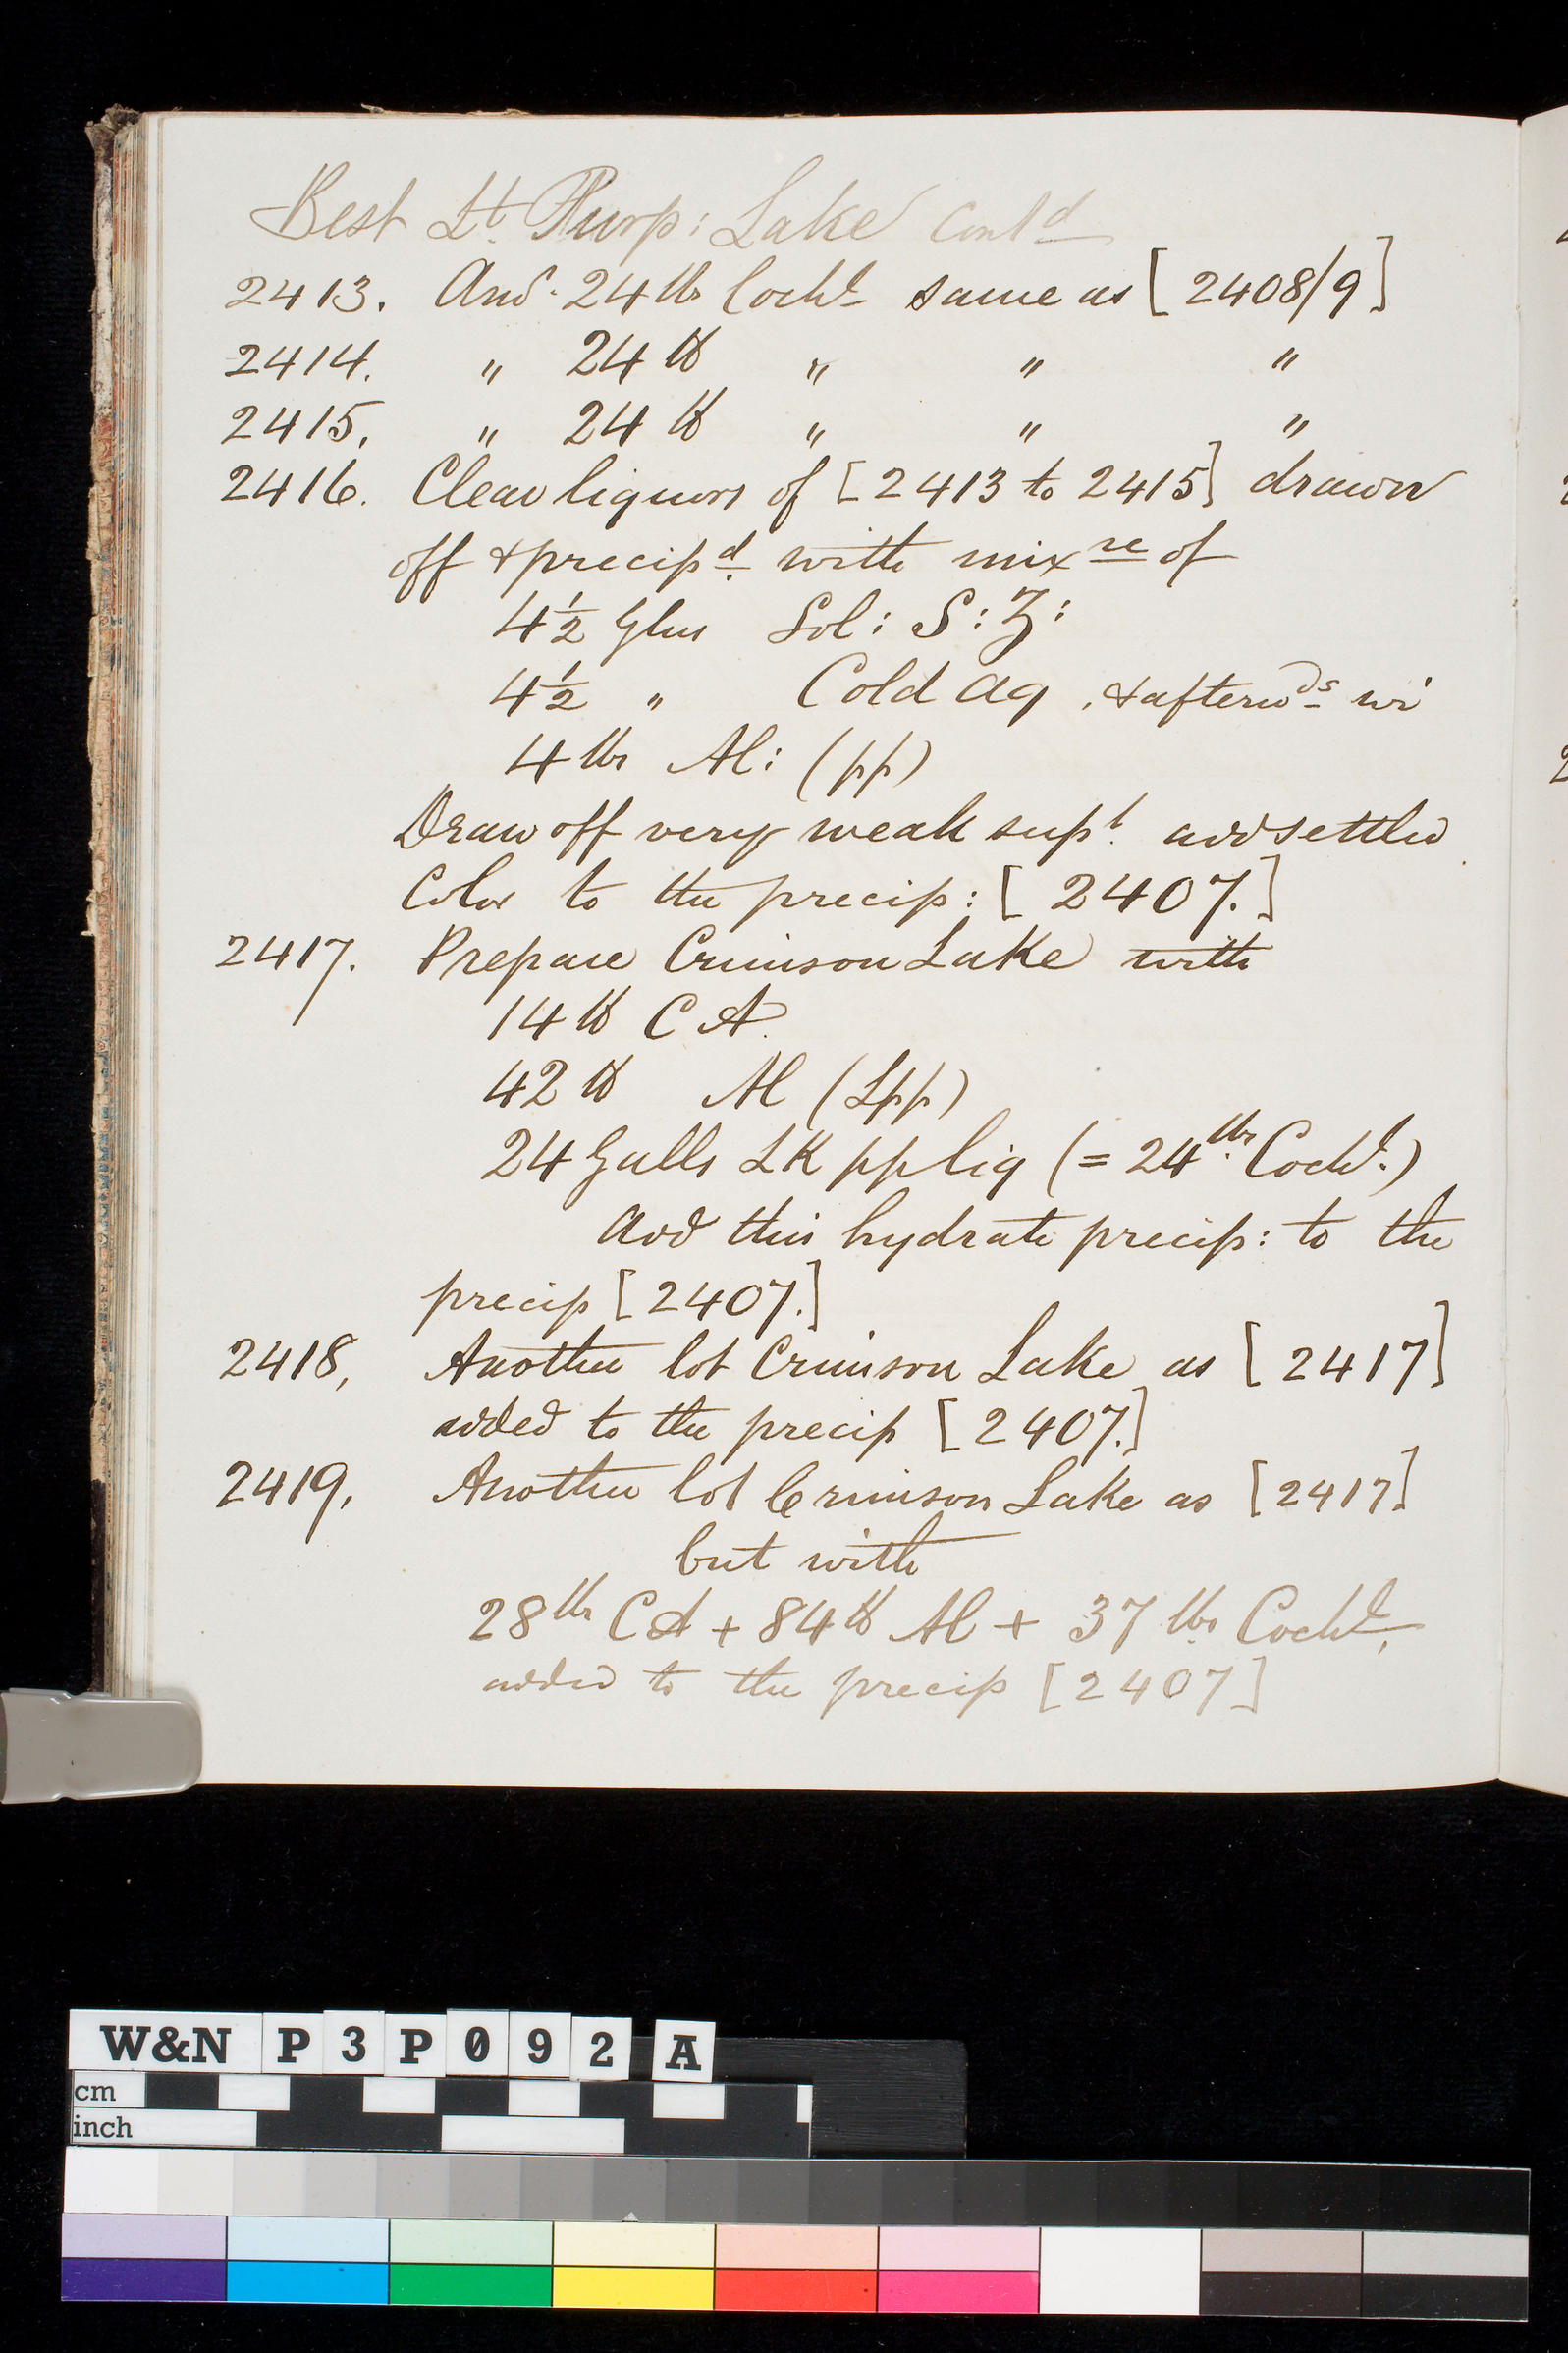 Best Lt. Purp: Lake Contd
2413. And. 24 lbs Cochl same as [2408/9]
2414. " 24 lb " " "
2415. " 24 lb " " "
2416. Clear liquors of [2413 to 2415] drawn
off & precipd. with mixre of
4½ Glns Sol: S: Z:
4½ " Cold aq, & afterwds wi
4 lbs Al: (pp)
Draw off very weak supt. add settled
Color to the precip: [2407.]
2417. Prepare Crimson Lake with
14 lb C A.
42 lb Al (Lpp)
24 Galls LK pp liq (= 24 lbs. Cochl.)
Add this hydrate precip: to the
precip [2407.]
2418, Another lot Crimson Lake as [2417]
added to the precip [2407.]
2419, Another lot Crimson Lake as [2417]
but with
28 lbs CA + 84 lb Al + 37 lbs Cochl,
added to the precip [2407]
W&N P3P092 A
cm
inch